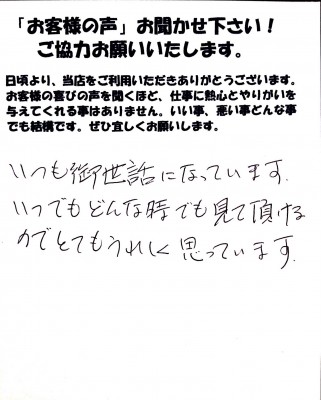 「お客様の声」お聞かせ下さい！
ご協力お願いいたします。
日頃より、当店をご利用いただきありがとうございます。
お客様の喜びの声を聞くほど、仕事に熱心とやりがいを
与えてくれる事はありません。いい事、悪い事どんな事
でも結構です。ぜひ宜しくお願いします。
いつも御世話になっています.
いつでもどんな時でも見て頂ける
のでとてもうれしく思っています.